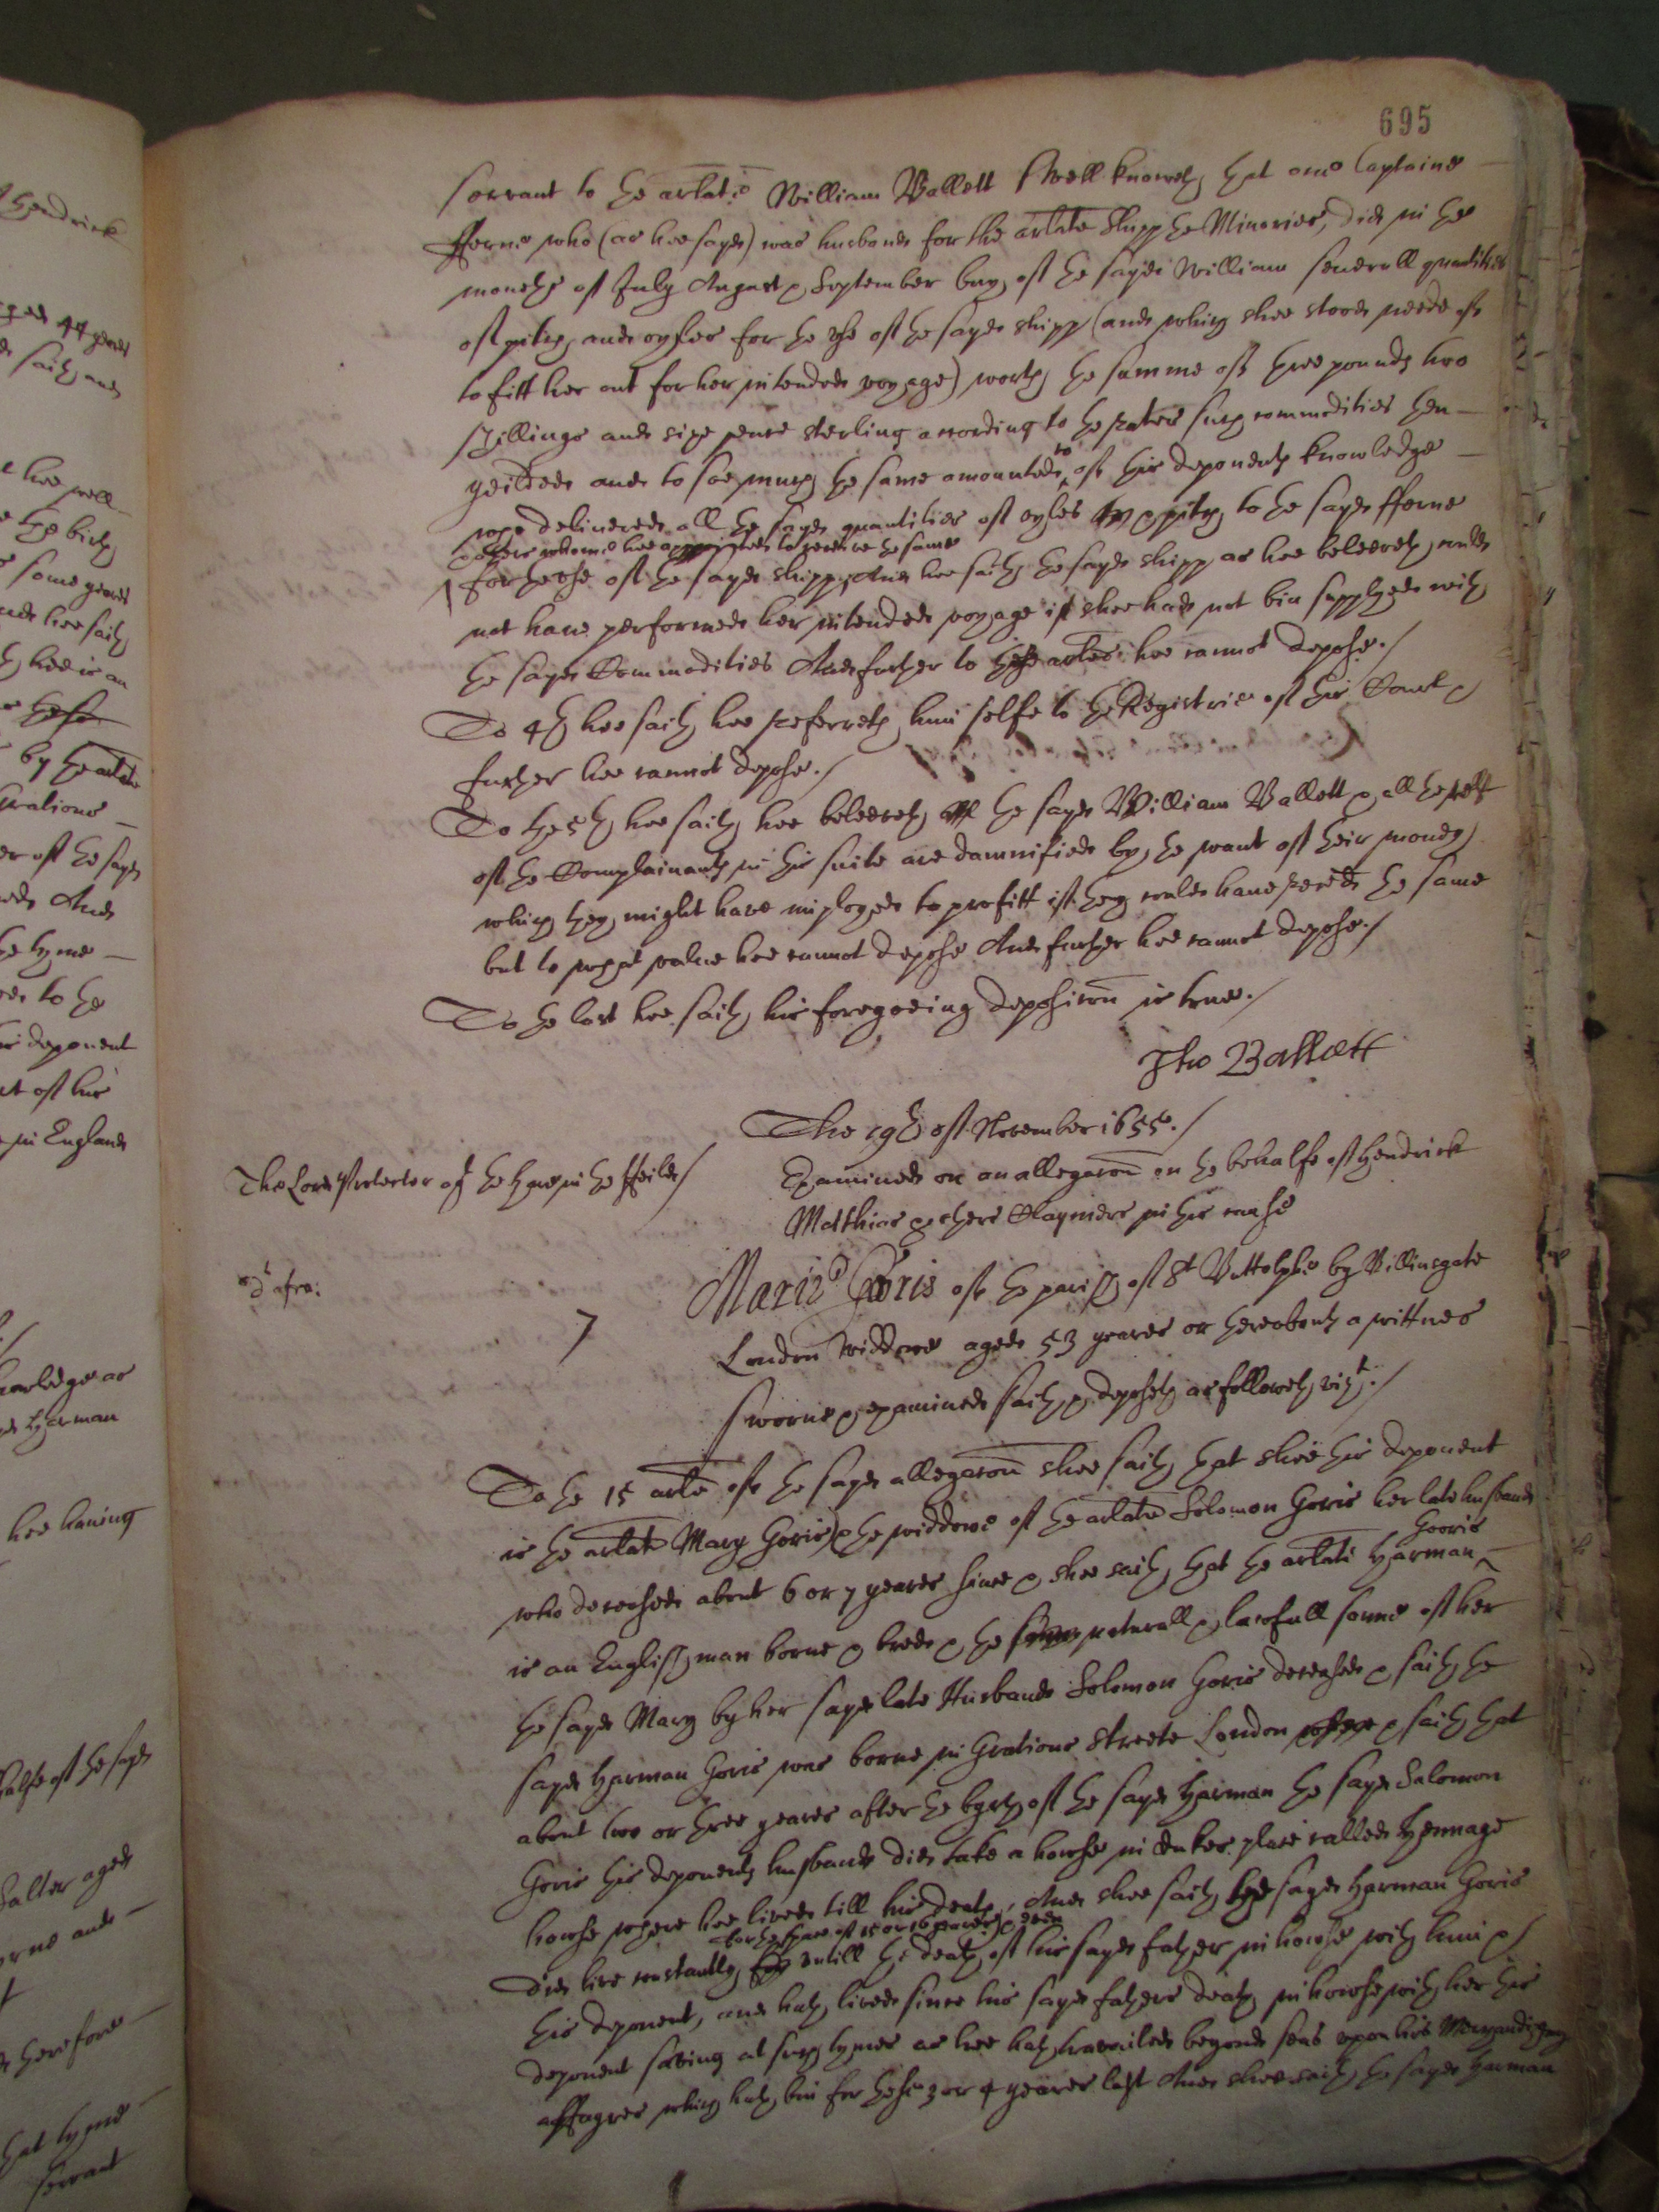 695
servant to the arlate William Ballett Well knoweth that one Captaine
fferne who (as hee sayd) was husband for the arlate Shipp the Minories, did in the
moneths of July August & September buy of the sayd William severall quantities
of pitch and oyles for the use of the sayd shipp (and which shee stood neede of
to fitt her out for her intended voyage) worth the summe of three pounds two
shillings and sixe pence sterling according to the rates such commodities then
yeilded and to soe much the same amounted to of this deponents knowledge
who delivered all the sayd quantities of oyles & pitch to the sayd fferne
& others whome hee appointed to receive the same
for the use of the sayd shipp, And hee saith the sayd shipp as hee beleeveth could
not have performed her intended voyage if shee had not bin supplyed with
the sayd Commodities And further to this arlee hee cannot depose./
To 4th hee saith hee referreth him selfe to the Registrie of this Court &
further hee cannot depose./
To the 5th hee saith hee beleeveth the sayd William Ballett & all the rest
of the Complainants in this suite are damnified by the want of their money
which they might have imployed to profitt if they could have received the same
but to what value hee cannot depose And further hee cannot depose./
To the last hee saith his foregoeing deposicon is true./
Tho Ballett
The 19th of November 1655./
The Lord Protector agt the hope in the ffeild/
Examined on an allegacon on the behalfe of Hendrick
Matthias & others Claymers in this cause
7
Marie Goris of the parish of St Buttolphs by Billinsgate
London Widdowe aged 53 yeares or thereabouts a wittnes
sworne & examined saith & deposeth as followeth vizt./
To the 15 arle of the sayd allegacon shee saith that shee this deponent
is the arlate Mary Goris & the widdowe of the arlate Solomon Goris her late husband
who deceased about 6 or 7 yeares since & shee saith that the arlate Harman Gooris
is an English man borne & bred & the naturall & lawfull sonne of her
the sayd Mary by her sayd late Husband Solomon Goris deceased & saith the
sayd Harman Goris was borne in Gratious Streete London & saith that
about two or three yeares after the byrth of the sayd Harman the sayd Salomon
Goris this deponents husband did take a house in dukes place called Hennage
house where hee lived till his death, And shee saith the sayd Harman Goris
for the space of 15 or 16 yeares &
did live constantly untill the death of his sayd father in house with him &
this deponent, and hath lived since his sayd fathers death in house with her this
deponent saving at such tymes as hee hath travailed beyond seas upon his Marchandizing
affayres which hath bin for these 3 or 4 yeares last And shee saith the sayd Harman